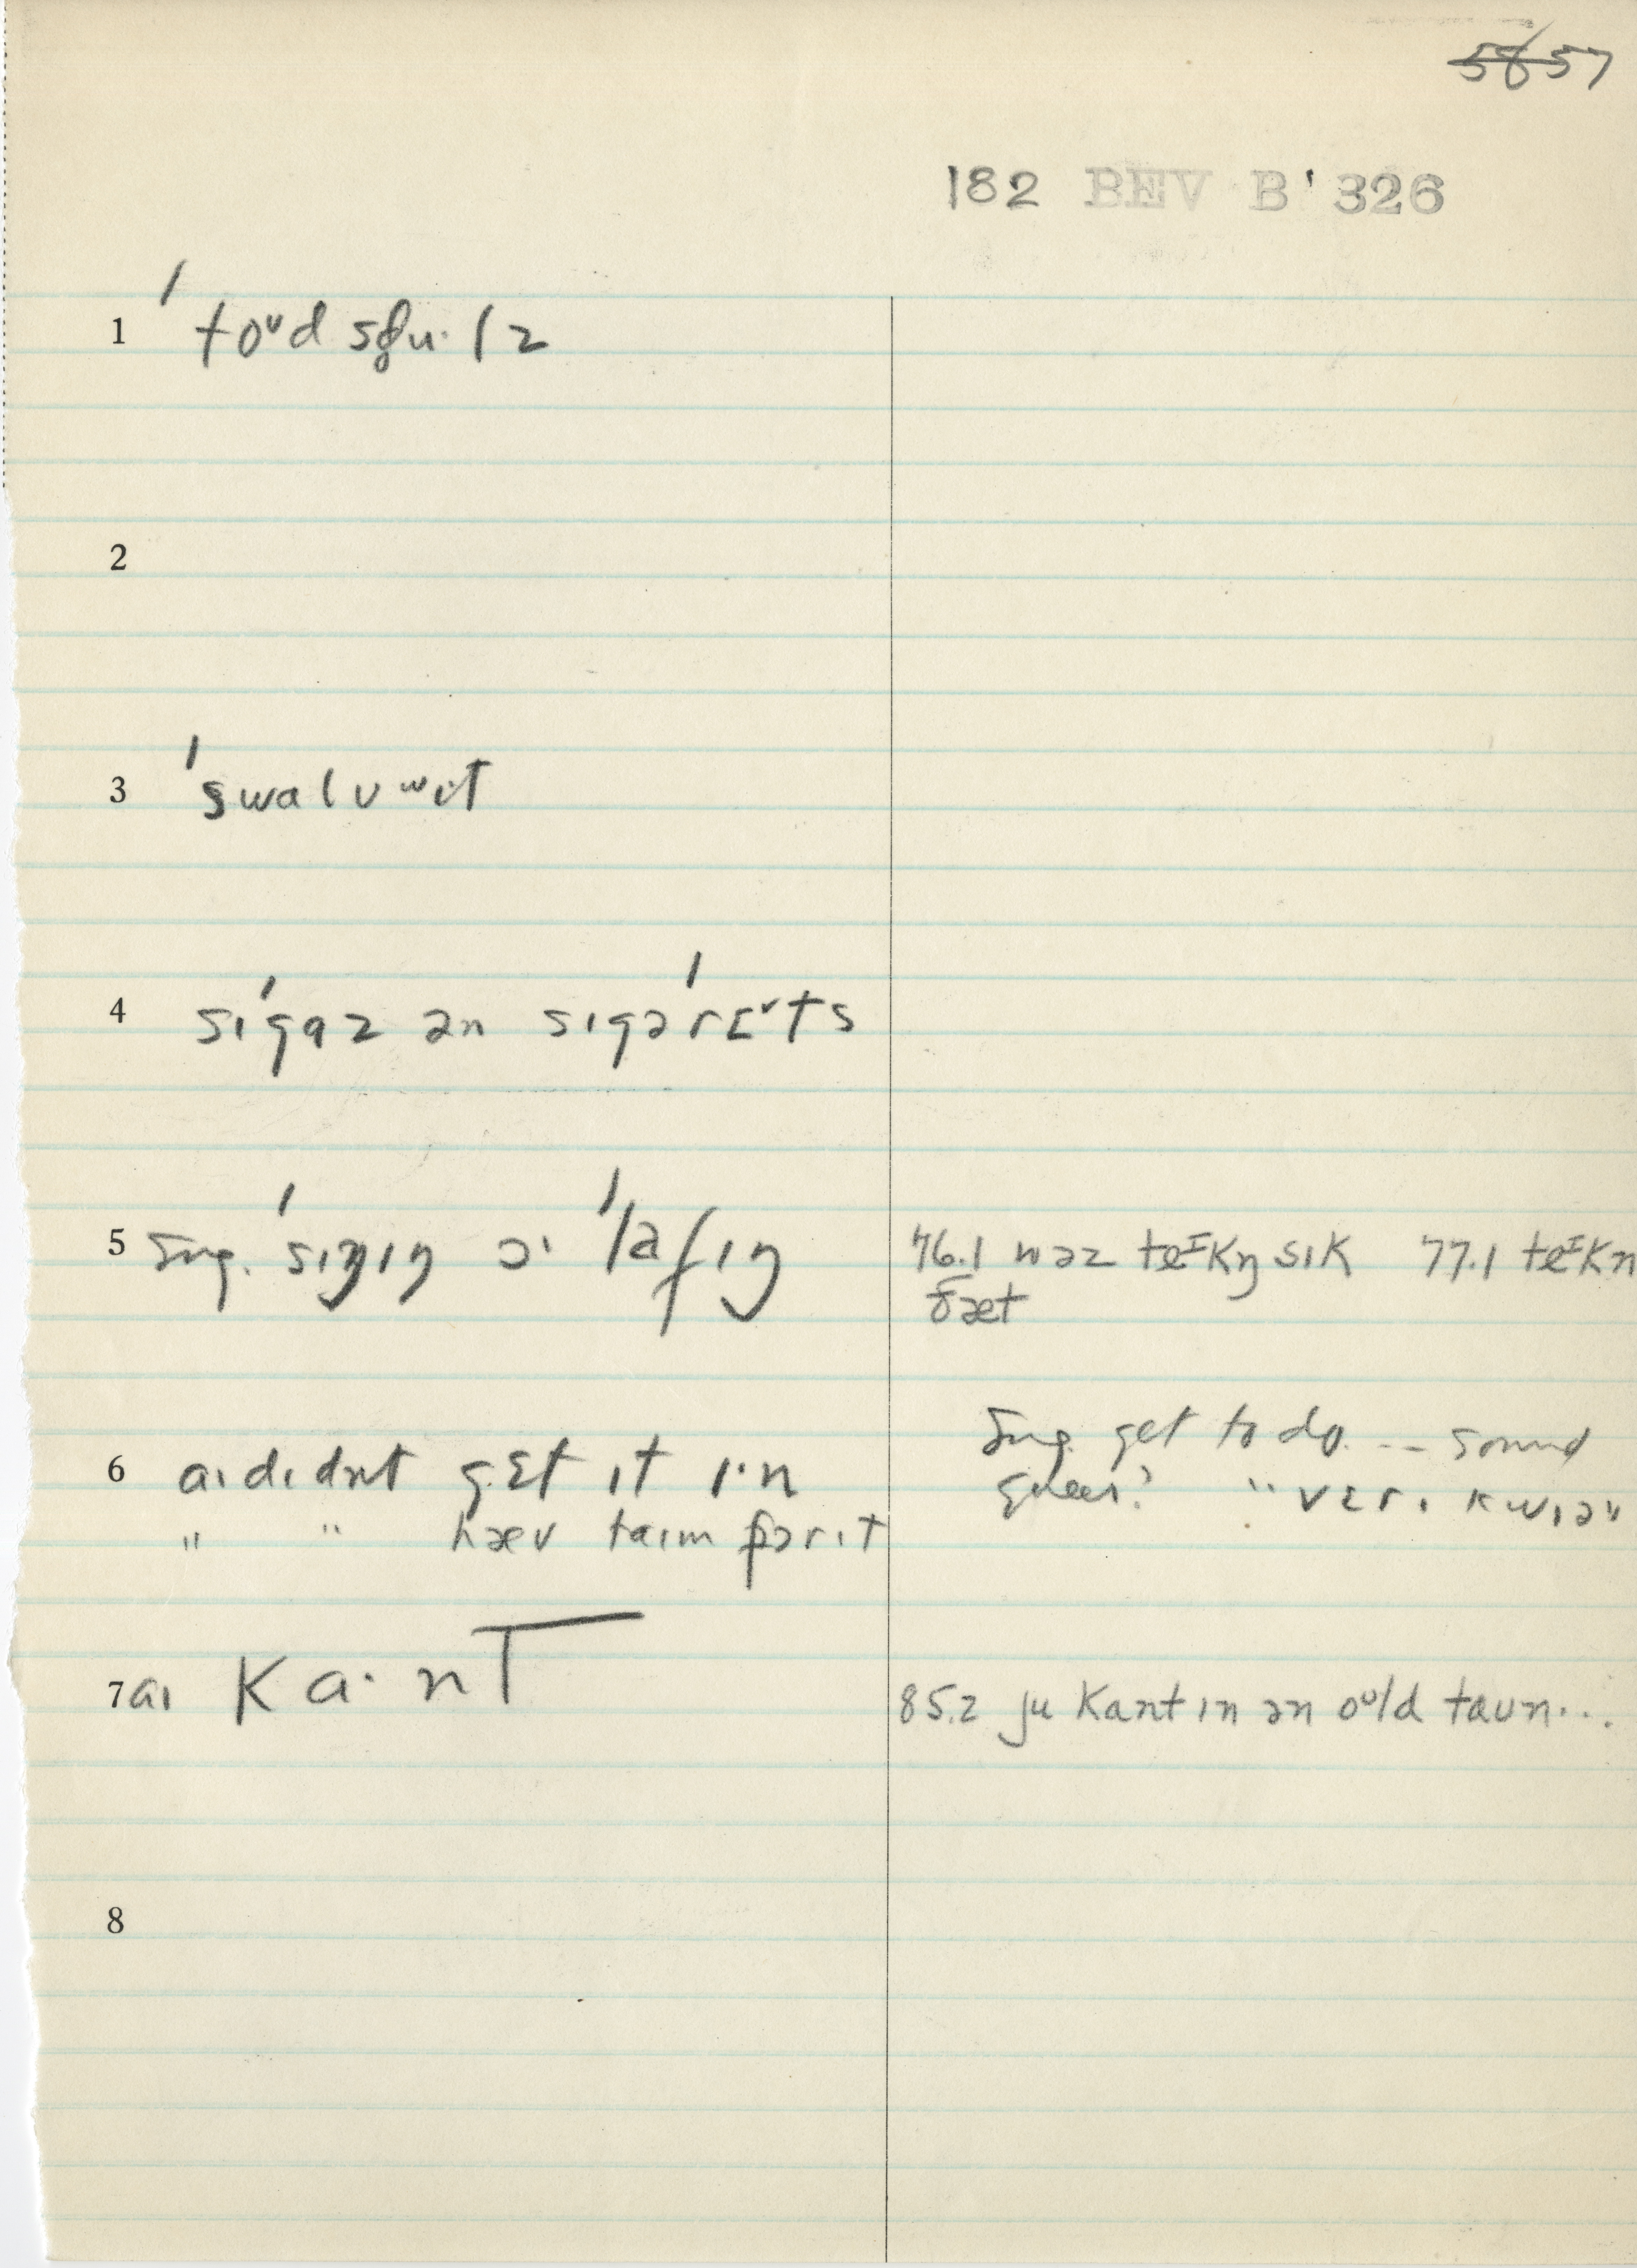 58 57
182 BEV B' 326
1 ˈtoᵘd sɡu·lz
2
3 ˈswalʊʷɪt
4 ˈsɪɡaz ən sɪɡəˈrɛᵛts
5 sug. ˈsɪŋɪŋ ɔ· ˈlafɪŋ
76.1 wəz teᴵkŋ sɪk 77.1 teᴵkn
ðæt
6 aɪ dɪdnt ɡɛt ɪt ɪ·n
" " hæv taɪm fɔr ɪt
Sug. get to do... sound
queer? "vɛrɪ kwɪə"
7 aɪ ka·nt
85.2 ju kant ɪn ən oᵘld taʊn...
8